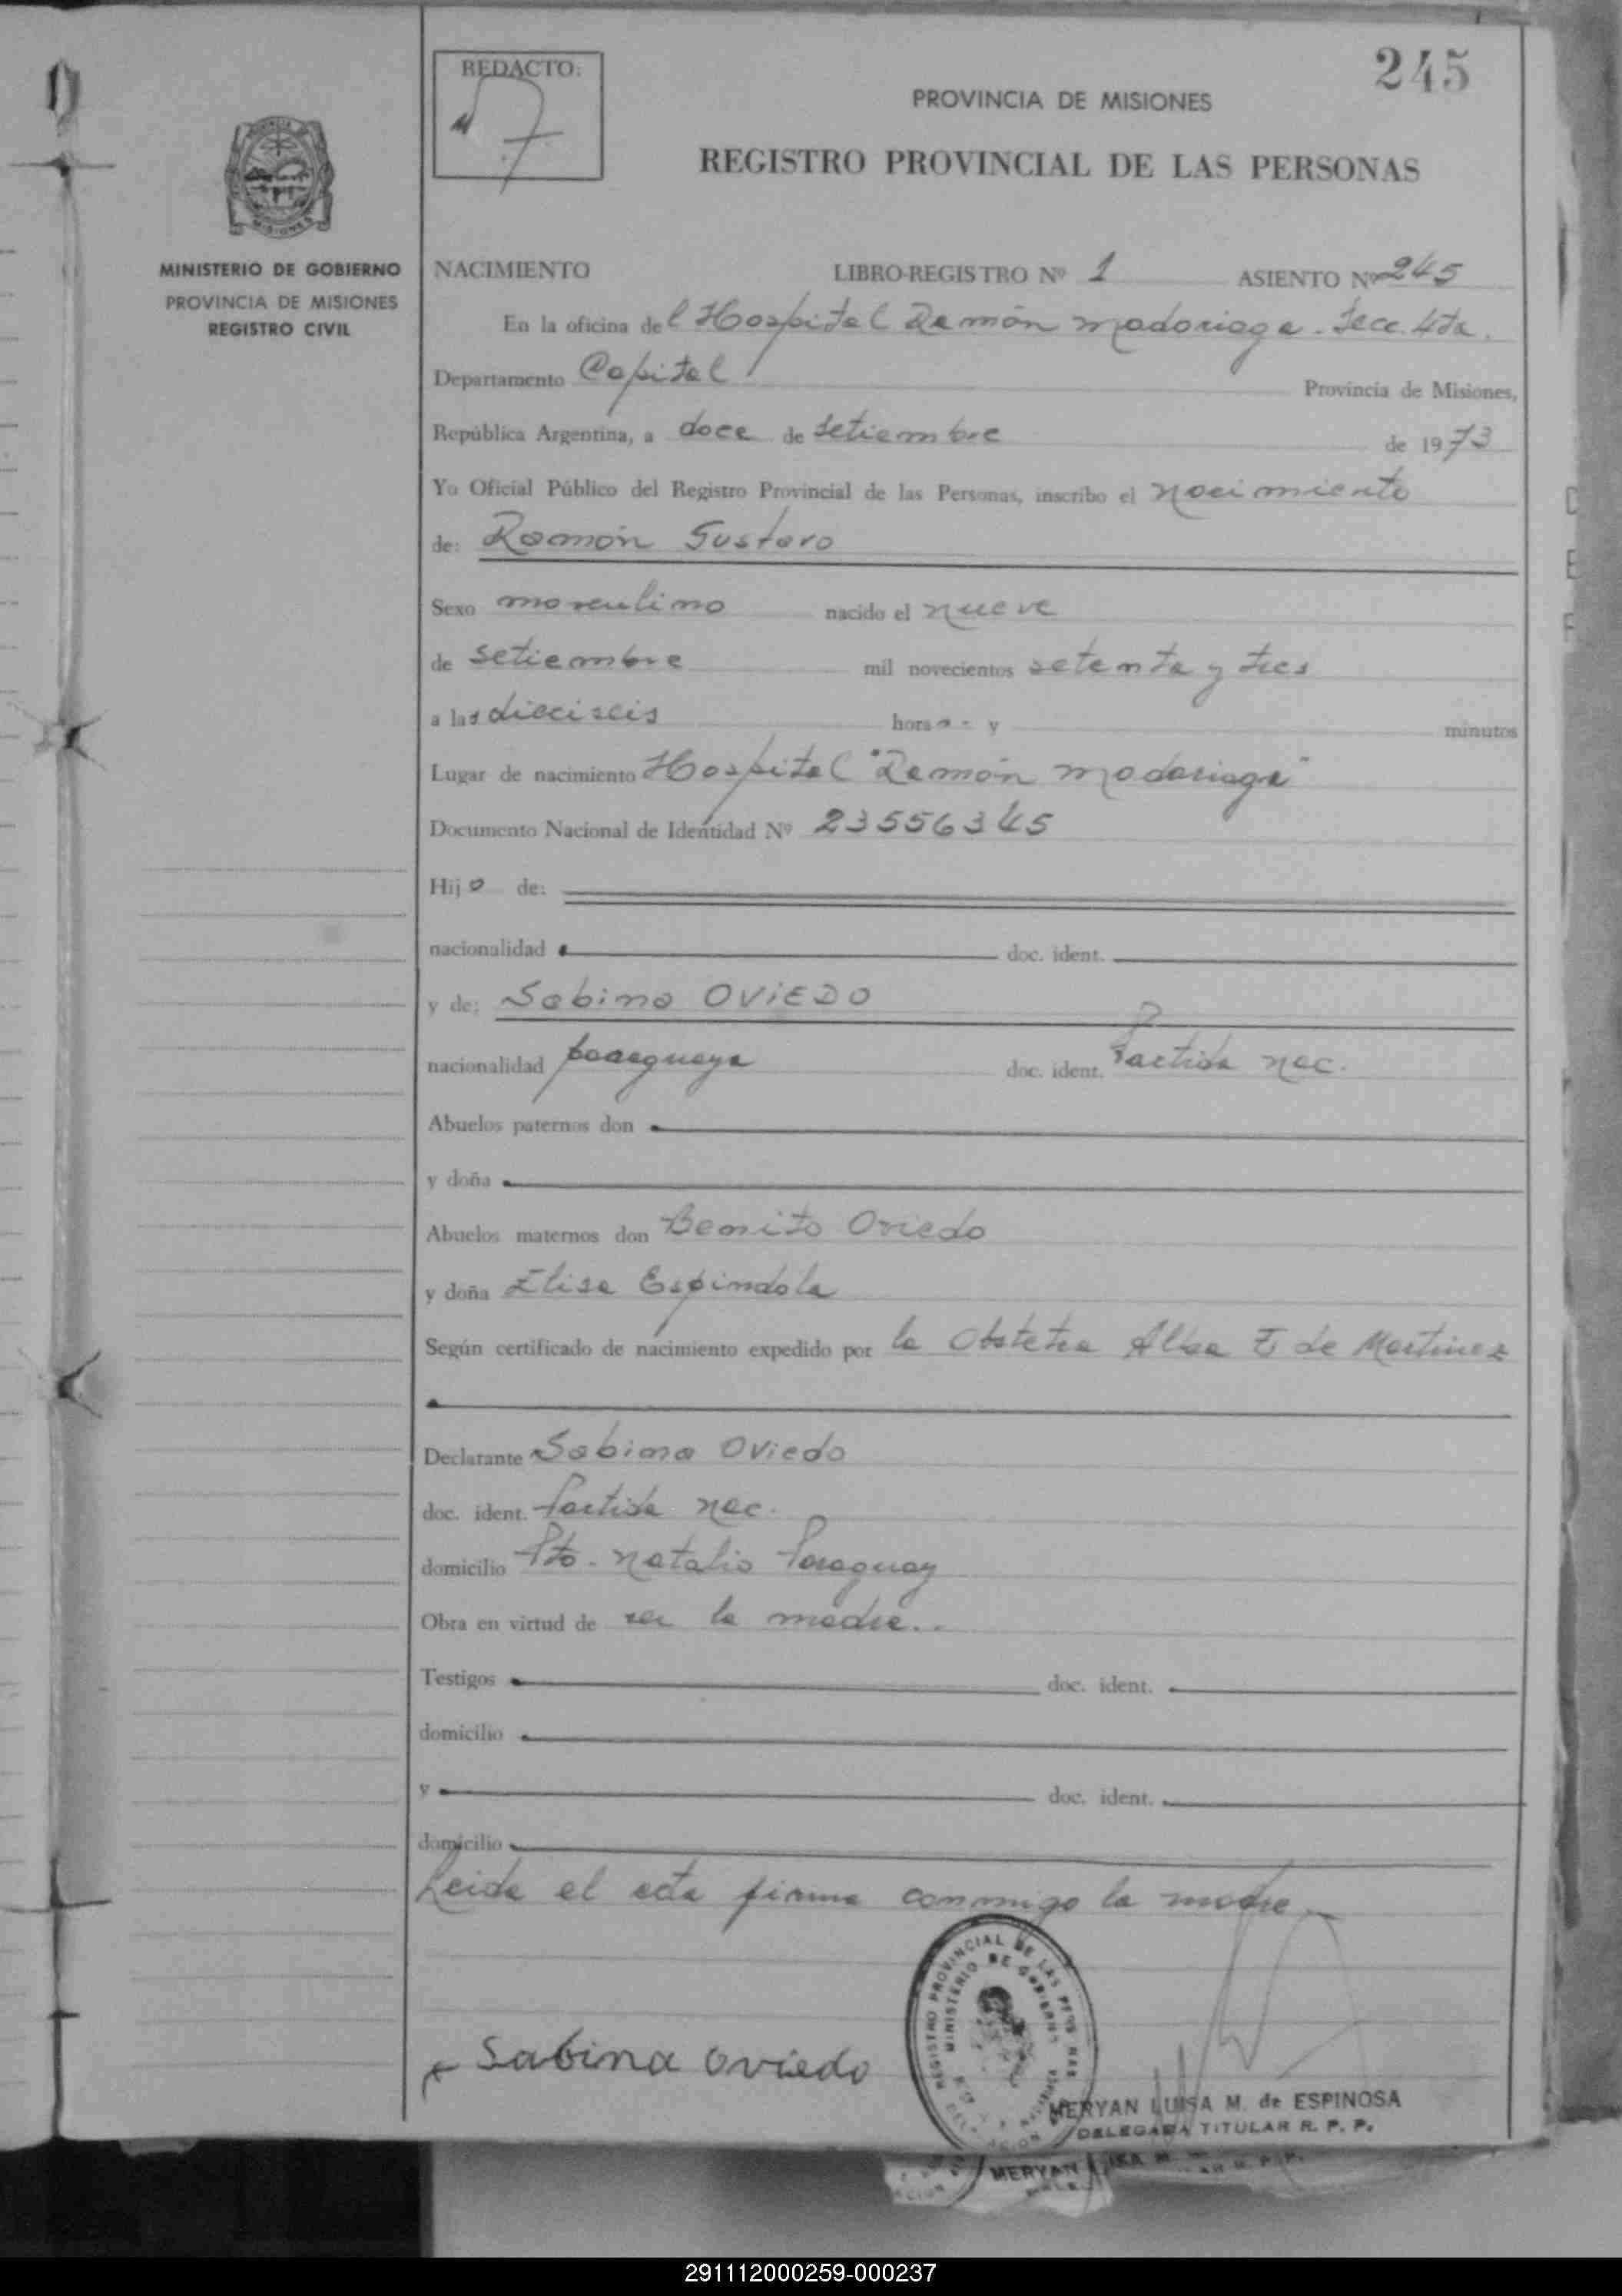 245
REDACTO:
PROVINCIA DE MISIONES
REGISTRO PROVINCIAL DE LAS PERSONAS
MINISTERIO DE GOBIERNO
PROVINCIA DE MISIONES
REGISTRO CIVIL
NACIMIENTO LIBRO-REGISTRO Nº 1 ASIENTO Nº 245
En la oficina del Hospital Ramón Madariaga. Secc. 4ta.
Departamento Capital Provincia de Misiones,
República Argentina, a doce de setiembre de 1973
Yo Oficial Público del Registro Provincial de las Personas, inscribo el nacimiento
de: Ramón Gustavo
Sexo masculino nacido el nueve
de setiembre mil novecientos setenta y tres
a las dieciseis horas y minutos
Lugar de nacimiento Hospital "Ramón Madariaga"
Documento Nacional de Identidad Nº 23556345
Hijo de:
nacionalidad doc. ident.
y de: Sabina OVIEDO
nacionalidad paraguaya doc. ident. Partida nac.
Abuelos paternos don
y doña
Abuelos maternos don Benito Oviedo
y doña Elisa Espindola
Según certificado de nacimiento expedido por la Obstetra Alba E de Martinez
Declarante Sabina Oviedo
doc. ident. Partida nac.
domicilio Pto. Natalio Paraguay
Obra en virtud de ser la madre..
Testigos doc. ident.
domicilio
y doc. ident.
domicilio
Leida el acta firma conmigo la madre
REGISTRO PROVINCIAL DE LAS PERSONAS
MINISTERIO DE GOBIERNO
Sabina Oviedo
MERYAN LUISA M. de ESPINOSA
DELEGADA TITULAR R. P. P.
MERYAN
291112000259-000237